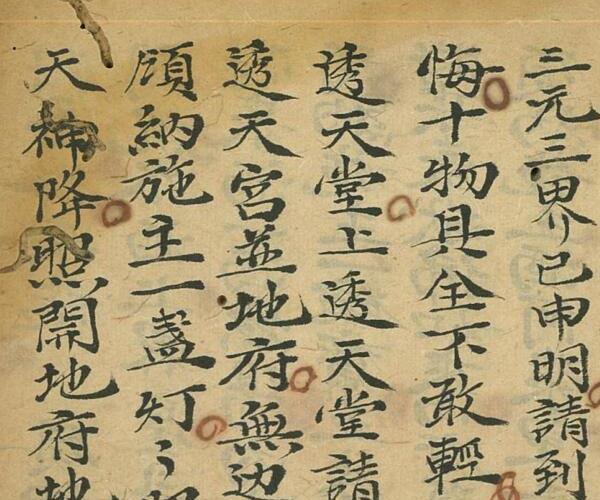 三元三界已申明請到
悔十物具全不敢輕
透天堂上透天堂請
透天宮並地府無边
頋納施主一盞灯〻
天神降照開地府